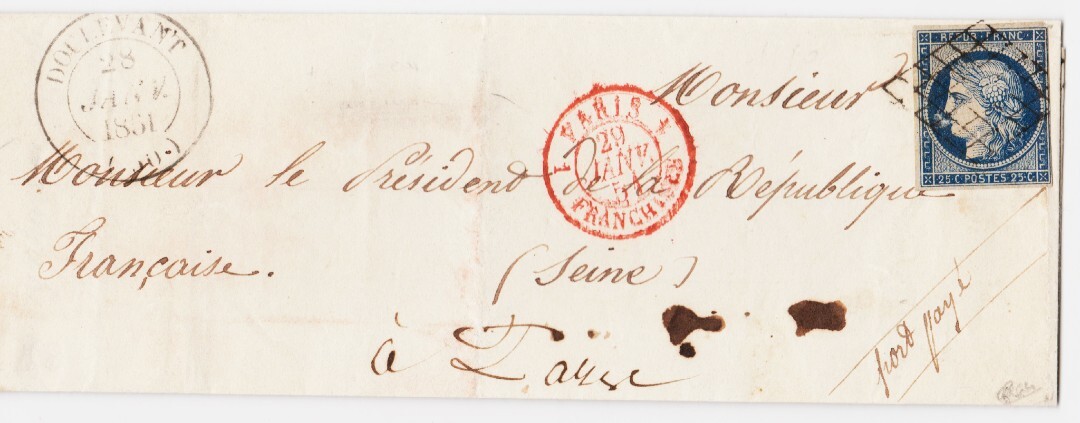 DOULEVANT
28
JANV.
1851
REPUB. FRANC.
25·C·POSTES 25·C·
PARIS
29
JANV.
51
FRANCHISES
Monsieur
Monsieur le Président de la République
Française.
(Seine)
à Paris
port payé